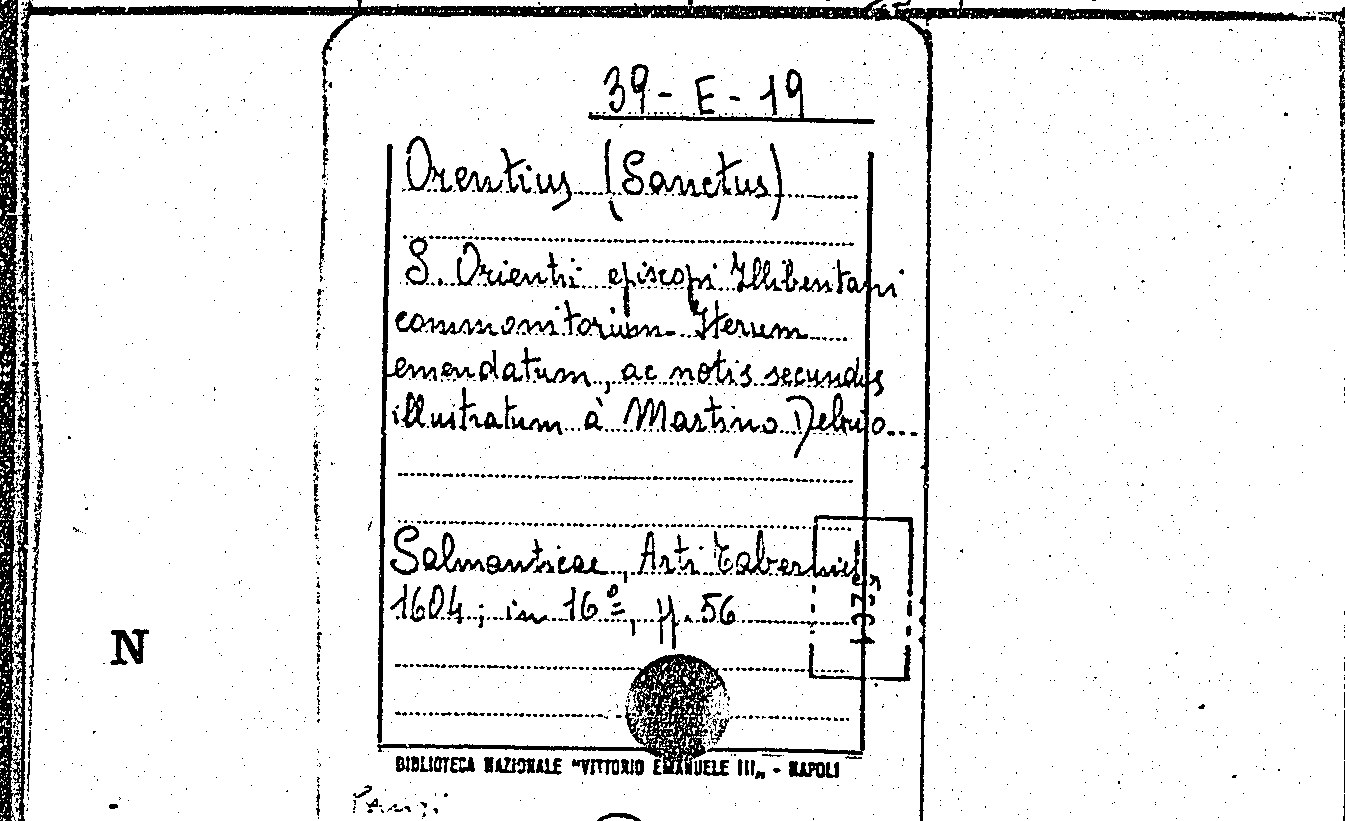 39-E-19
Orentius (Sanctus)
S. Orientii episcopi Illibentani
commonitorium. Iterum
emendatum, ac notis secundis
illustratum à Martino Delrio...
Salmanticae, Arti Taberniel,
1604; in 16º, pp. 56
N
BIBLIOTECA NAZIONALE "VITTORIO EMANUELE III„ - NAPOLI